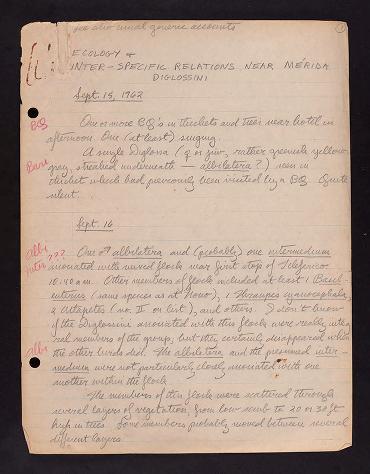 See also usual generic accounts
ECOLOGY &
INTER-SPECIFIC RELATIONS NEAR MÉRIDA
DIGLOSSINI
Sept. 15, 1962
BQ One or more BQ's in thickets and trees near hotel in
afternoon. One (at least) singing.
A single Diglossa (♀ or juv., rather greenish yellow-
gray, streaked underneath — albilatera?) seen in
thicket which had previously been visited by a BQ. Quite
silent.
Sept. 16
Albi One ♂ albilatera and (probably) one intermedium
inter??? associated with mixed flock near first stop of Teleferico
10:40 a.m. Other members of flock included at least 1 Basil-
euterus (same species as at
), 1 Thraupis cyanocephala,
2 Atlapetes (no. II on list), and others. I don't know
if the Diglossini associated with this flock were really integ-
ral members of the group, but they certainly disappeared when
Albi the other birds did. The albilatera and the presumed inter-
medium were not particularly closely associated with one
another within the flock.
The members of this flock were scattered through
several layers of vegetation, from low scrub to 20 or 30 ft
high in trees. Some members probably moved between several
different layers.